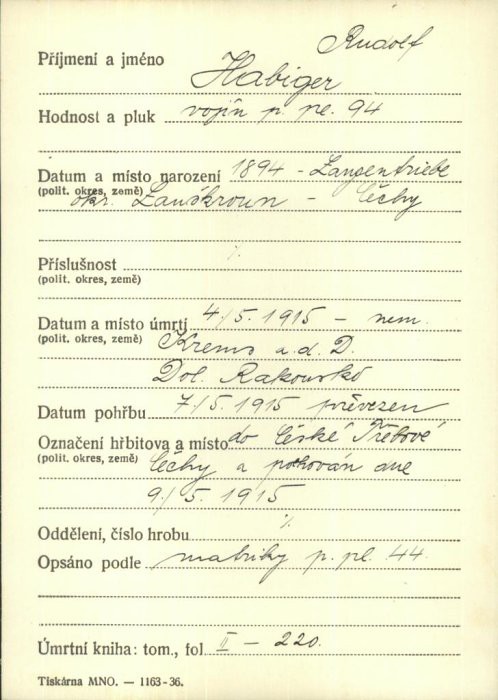 Rudolf
Příjmení a jméno Habiger
Hodnost a pluk vojín p. pl. 94
Datum a místo narození 1894 - Langentriebe
(polit. okres, země) okr. Lanškroun - Čechy
Příslušnost %
(polit. okres, země)
Datum a místo úmrtí 4./5. 1915 - nem.
(polit. okres, země) Krems a. d. D.
Dol. Rakousko
Datum pohřbu 7./5. 1915 převezen
Označení hřbitova a místo do České Třebové
(polit. okres, země) Čechy a pohován dne
9./5. 1915
Oddělení, číslo hrobu %
Opsáno podle matriky p. pl. 44
Úmrtní kniha: tom., fol. II - 220.
Tiskárna MNO. — 1163-36.